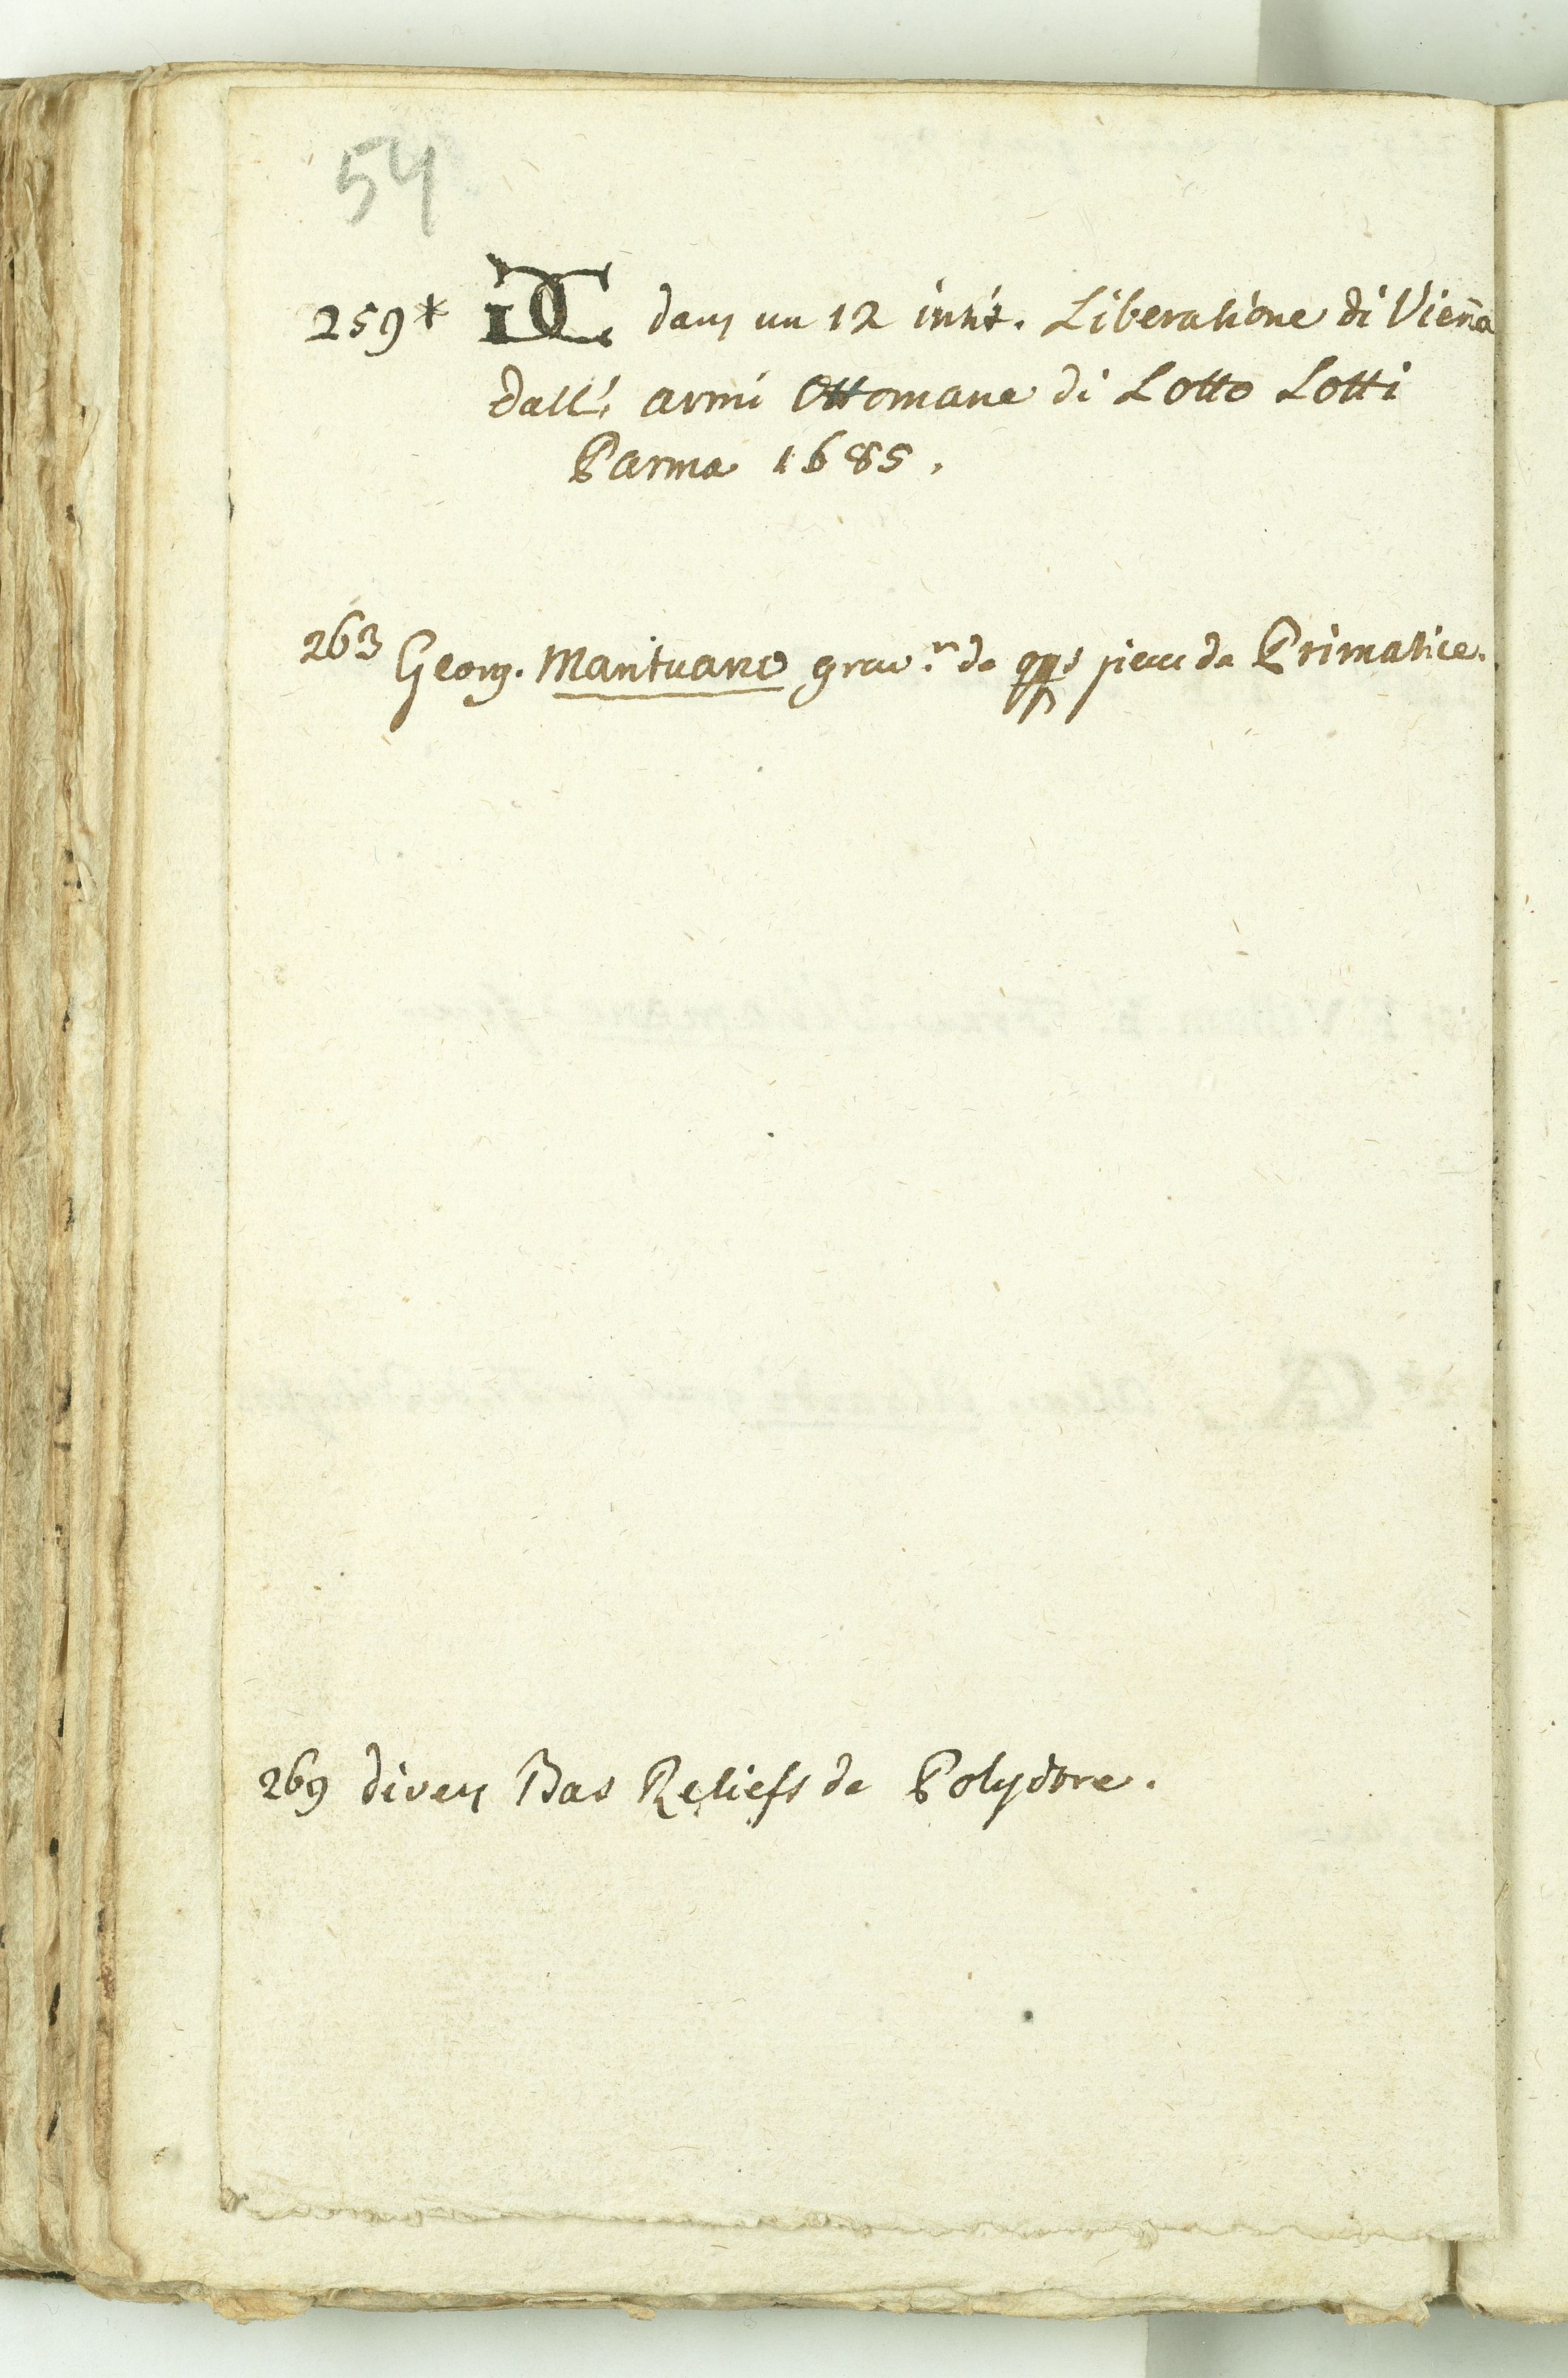 54
259* IDC dans un 12 intit. Liberatione di Vieña
dall'armi Ottomane di Lotto Lotti
Parma 1685.
263 Georg. Mantuano grav.n de qqs piece de Primatice.
269 divers Bas Reliefs de Polydore.